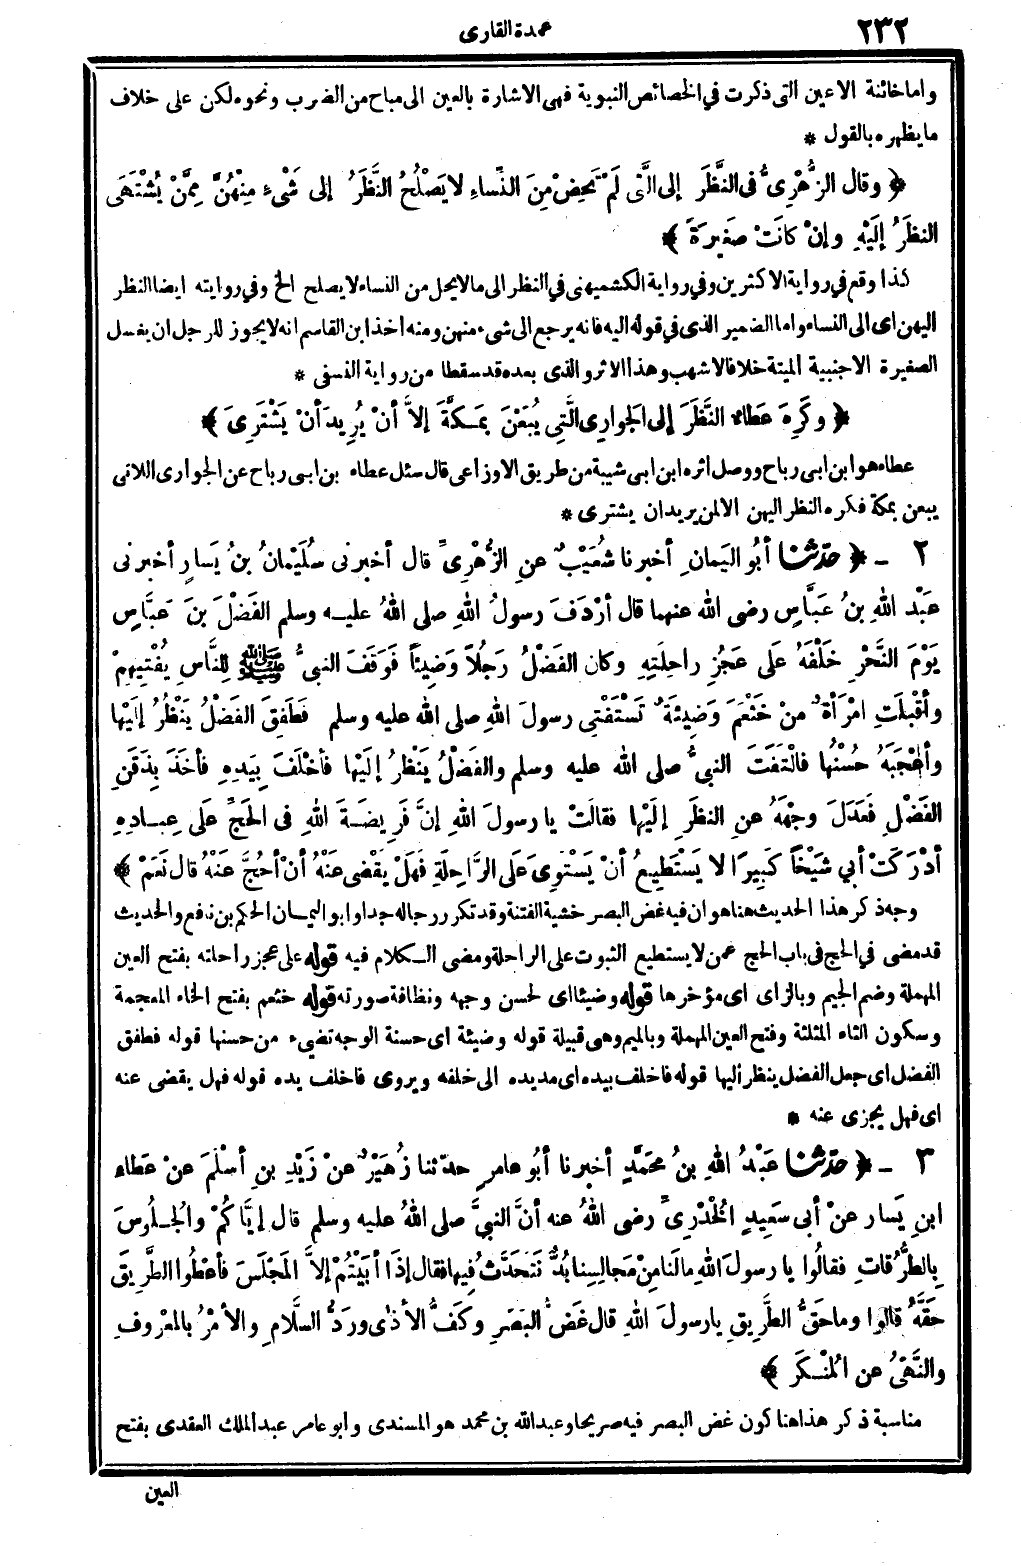 ٢٣٢
عمدة القارى
واما خائنة الاعين التى ذكرت في الخصائص النبوية فهى الاشارة بالعين الى مباح من الضرب ونحوه لكن على خلاف
ما يظهره بالقول *
﴿ وقال الزُّهْرِىُّ فى النَّظَرِ إلى الَّتِى لَمْ تَحِضْ مِنَ النِّساءِ لا يَصْلُحُ النَّظَرُ إلى شَىْءٍ مِنْهُنَّ مِمَّنْ يُشْتَهَى
النظَرُ إلَيْهِ وإنْ كانَتْ صَغِيرَةً ﴾
كذا وقع في رواية الاكثرين وفي رواية الكشميهنى في النظر الى ما لا يحل من النساء لا يصلح الخ وفي روايته ايضا النظر
اليهن اى الى النساء واما الضمير الذى في قوله اليه فانه يرجع الى شىء منهن ومنه اخذ ابن القاسم انه لا يجوز للرجل ان يغسل
الصغيرة الاجنبية الميتة خلافا لاشهب وهذا الاثر والذى بعده قد سقطا من رواية النسفى *
﴿ وكَرِهَ عَطاء النَّظَرَ إلى الجوارِى الَّتِي يُبَعْنَ بِمَكَّةَ إلاَّ أنْ يُرِيدَ أنْ يَشْتَرِىَ ﴾
عطاء هو ابن ابى رباح ووصل اثره ابن ابى شيبة من طريق الاوزاعى قال سئل عطاء بن ابى رباح عن الجوارى اللاتى
يبعن بمكة فكره النظر اليهن الا لمن يريد ان يشترى *
٢ - ﴿ حدّثنا أبُو اليَمانِ أخبرنا شُعَيْبٌ عنِ الزُّهْرِىِّ قال أخبرنى سُلَيْمانُ بنُ يَسارٍ أخبرنى
عَبْد اللهِ بنُ عَبَّاسٍ رضى الله عنهما قال أرْدَفَ رسولُ اللهِ صلى اللهُ عليه وسلم الفَضْلَ بنَ عَبَّاسٍ
يَوْمَ النَّحْرِ خَلْفَهُ عَلَى عَجُزِ راحِلَتِهِ وكان الفَضْلُ رَجُلاً وَضِيئاً فَوَقَفَ النبىُّ ﷺ لِلنَّاسِ يُفْتِيهِمْ
وأقْبَلَتِ امْرَأةٌ مِنْ خَثْعَمَ وَضِيئَةٌ تَسْتَفْتِى رسولَ اللهِ صلى الله عليه وسلم فَطَفِقَ الفَضْلُ يَنْظُرُ إلَيْها
وأعْجَبَهُ حُسْنُها فالْتَفَتَ النبىُّ صلى الله عليه وسلم والفَضْلُ يَنْظرُ إلَيْها فأخْلَفَ بِيَدِهِ فأخَذَ بِذَقَنِ
الفَضْلِ فَعَدَلَ وجْهَهُ عنِ النظَرِ إلَيْها فقالَتْ يا رسولَ اللهِ إنَّ فَرِيضَةَ اللهِ فى الحَجِّ عَلَى عِبادِهِ
أدْرَكَتْ أبي شَيْخاً كَبِيرًا لا يَسْتَطِيعُ أنْ يَسْتَوِىَ عَلَى الرَّاحِلَةِ فَهَلْ يَقْضِى عَنْهُ أنْ أحُجَّ عَنْهُ قال نَعَمْ ﴾
وجه ذكر هذا الحديث هنا هو ان فيه غض البصر خشية الفتنة وقد تكرر رجاله جدا وابو اليمان الحكم بن نافع والحديث
قد مضى في الحج فى باب الحج عمن لا يستطيع الثبوت على الراحلة ومضى الكلام فيه قوله على عجز راحلته بفتح العين
المهملة وضم الجيم وبالزاى اى مؤخرها قوله وضيئا اى لحسن وجهه ونظافة صورته قوله خثعم بفتح الخاء المعجمة
وسكون الثاء المثلثة وفتح العين المهملة وبالميم وهى قبيلة قوله وضيئة اى حسنة الوجه تضىء من حسنها قوله فطفق
الفضل اى جعل الفضل ينظر اليها قوله فاخلف بيده اى مد يده الى خلفه ويروى فاخلف يده قوله فهل يقضى عنه
اى فهل يجزى عنه *
٣ - ﴿ حدّثنا عَبْدُ اللهِ بنُ مُحَمَّدٍ أخبرنا أبُو عامرٍ حدّثنا زُهَيْرٌ عنْ زَيْدِ بنِ أسْلَمَ عَنْ عَطاء
ابنِ يَسار عنْ أبى سَعِيدٍ الخُدْرِىِّ رضى اللهُ عنه أنَّ النبىَّ صلى اللهُ عليه وسلم قال إيَّاكُمْ والجُلُوسَ
بِالطُّرُقاتِ فقالُوا يا رسولَ اللهِ ما لَنا مِنْ مَجالِسِنا بُدٌّ نَتَحَدَّثُ فِيها فقال إذَا أبَيْتُمْ إلاَّ المَجْلَسَ فأعْطُوا الطَّرِيقَ
حَقَّهُ قالُوا وماحَقُّ الطَّرِيقِ يا رسولَ اللهِ قال غَضُّ البَصَرِ وكَفُّ الأذَى ورَدُّ السَّلامِ والأمْرُ بالمَعْرُوفِ
والنَّهْىُ عنِ المُنْكَرِ ﴾
مناسبة ذكر هذا هنا كون غض البصر فيه صريحا وعبد الله بن محمد هو المسندى وأبو عامر عبد الملك العقدى بفتح
العين